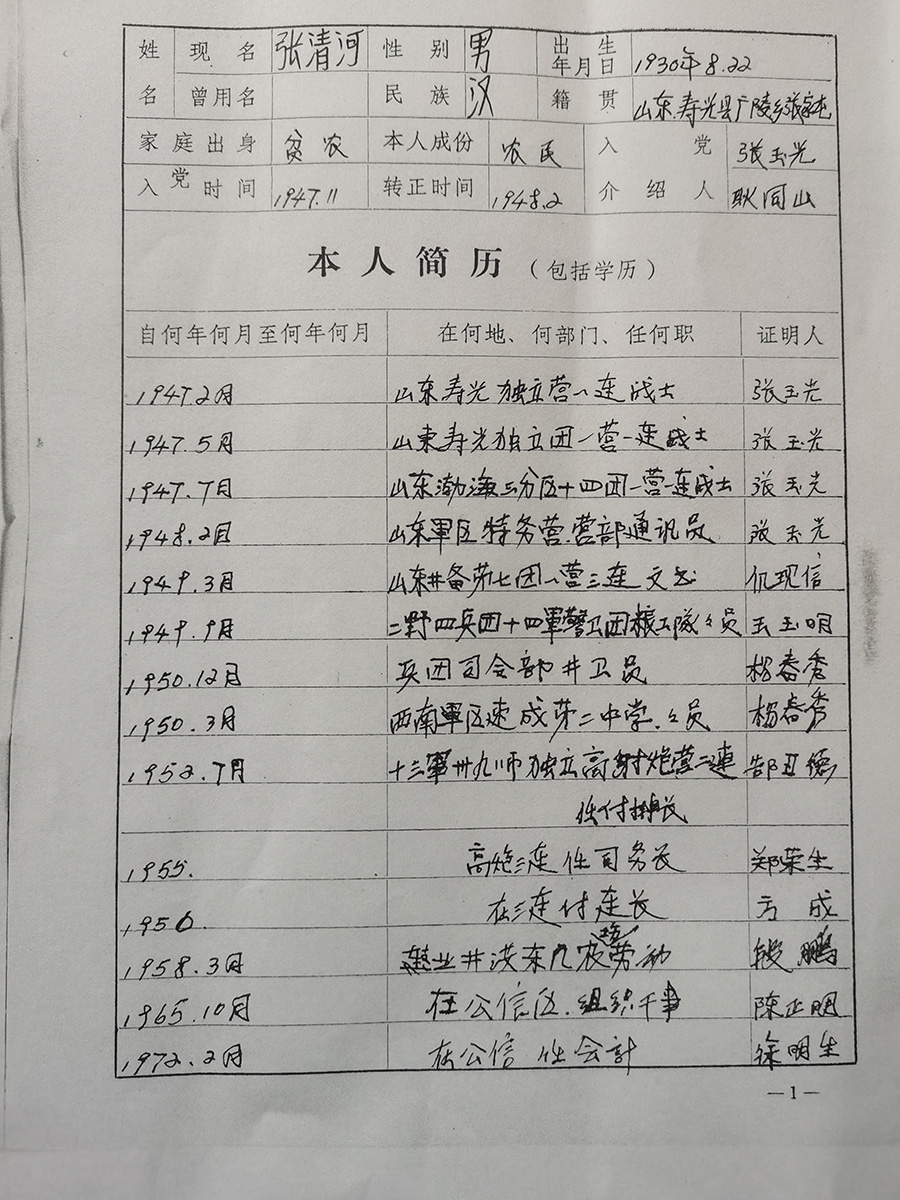 姓 现名 张清河 性别 男 出生年月日 1930年8.22
名 曾用名 民族 汉 籍贯 山东.寿光县广陵乡张家庄
家庭出身 贫农 本人成份 农民 入党 张玉光
入党时间 1947.11 转正时间 1948.2 介绍人 耿同山
本人简历（包括学历）
自何年何月至何年何月 在何地、何部门、任何职 证明人
1947.2月 山东寿光独立营一连战士 张玉光
1947.5月 山東寿光独立团一营一连战士 张玉光
1947.7月 山东渤海三分区十四团一营一连战士 张玉光
1948.2月 山东軍区特务营.营部通讯员 张玉光
1949.3月 山东井备第七团一营三连文书 仉现信
1949.9月 二野四兵团十四軍警卫团粮工隊々员 王玉明
1950.12月 兵团司令部井卫员 杨春秀
1950.3月 西南軍区速成第二中学.々员 杨春秀
1952.7月 十三軍卅九师独立高射炮营二連 郜丑德
任付排长
1955. 高炮三连任司务长 郑荣生
1956. 在三连付连长 方成
1958.3月 井 东 农场劳动 段鹏
1965.10月 在公信区.组织干事 陈正明
1972.2月 在公信 任会計 徐明生
—1—